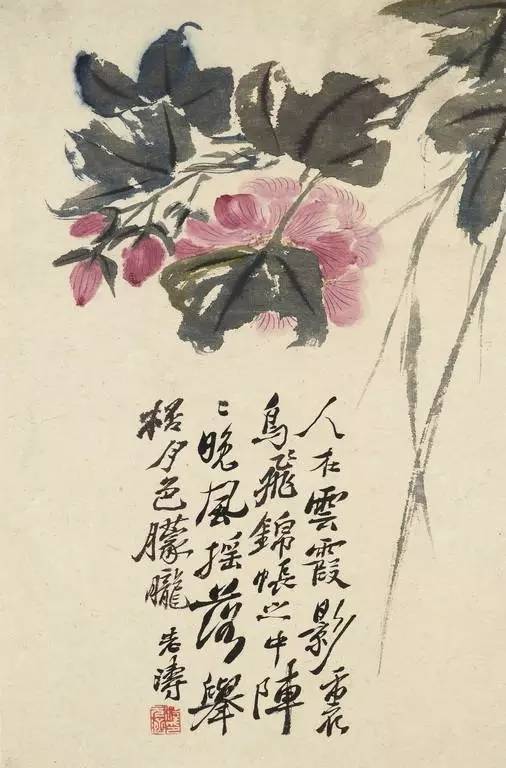 人在雲霞影裏
鳥飛錦帳之中陣
〻晚風搖落舉
月色朦朧 老濤